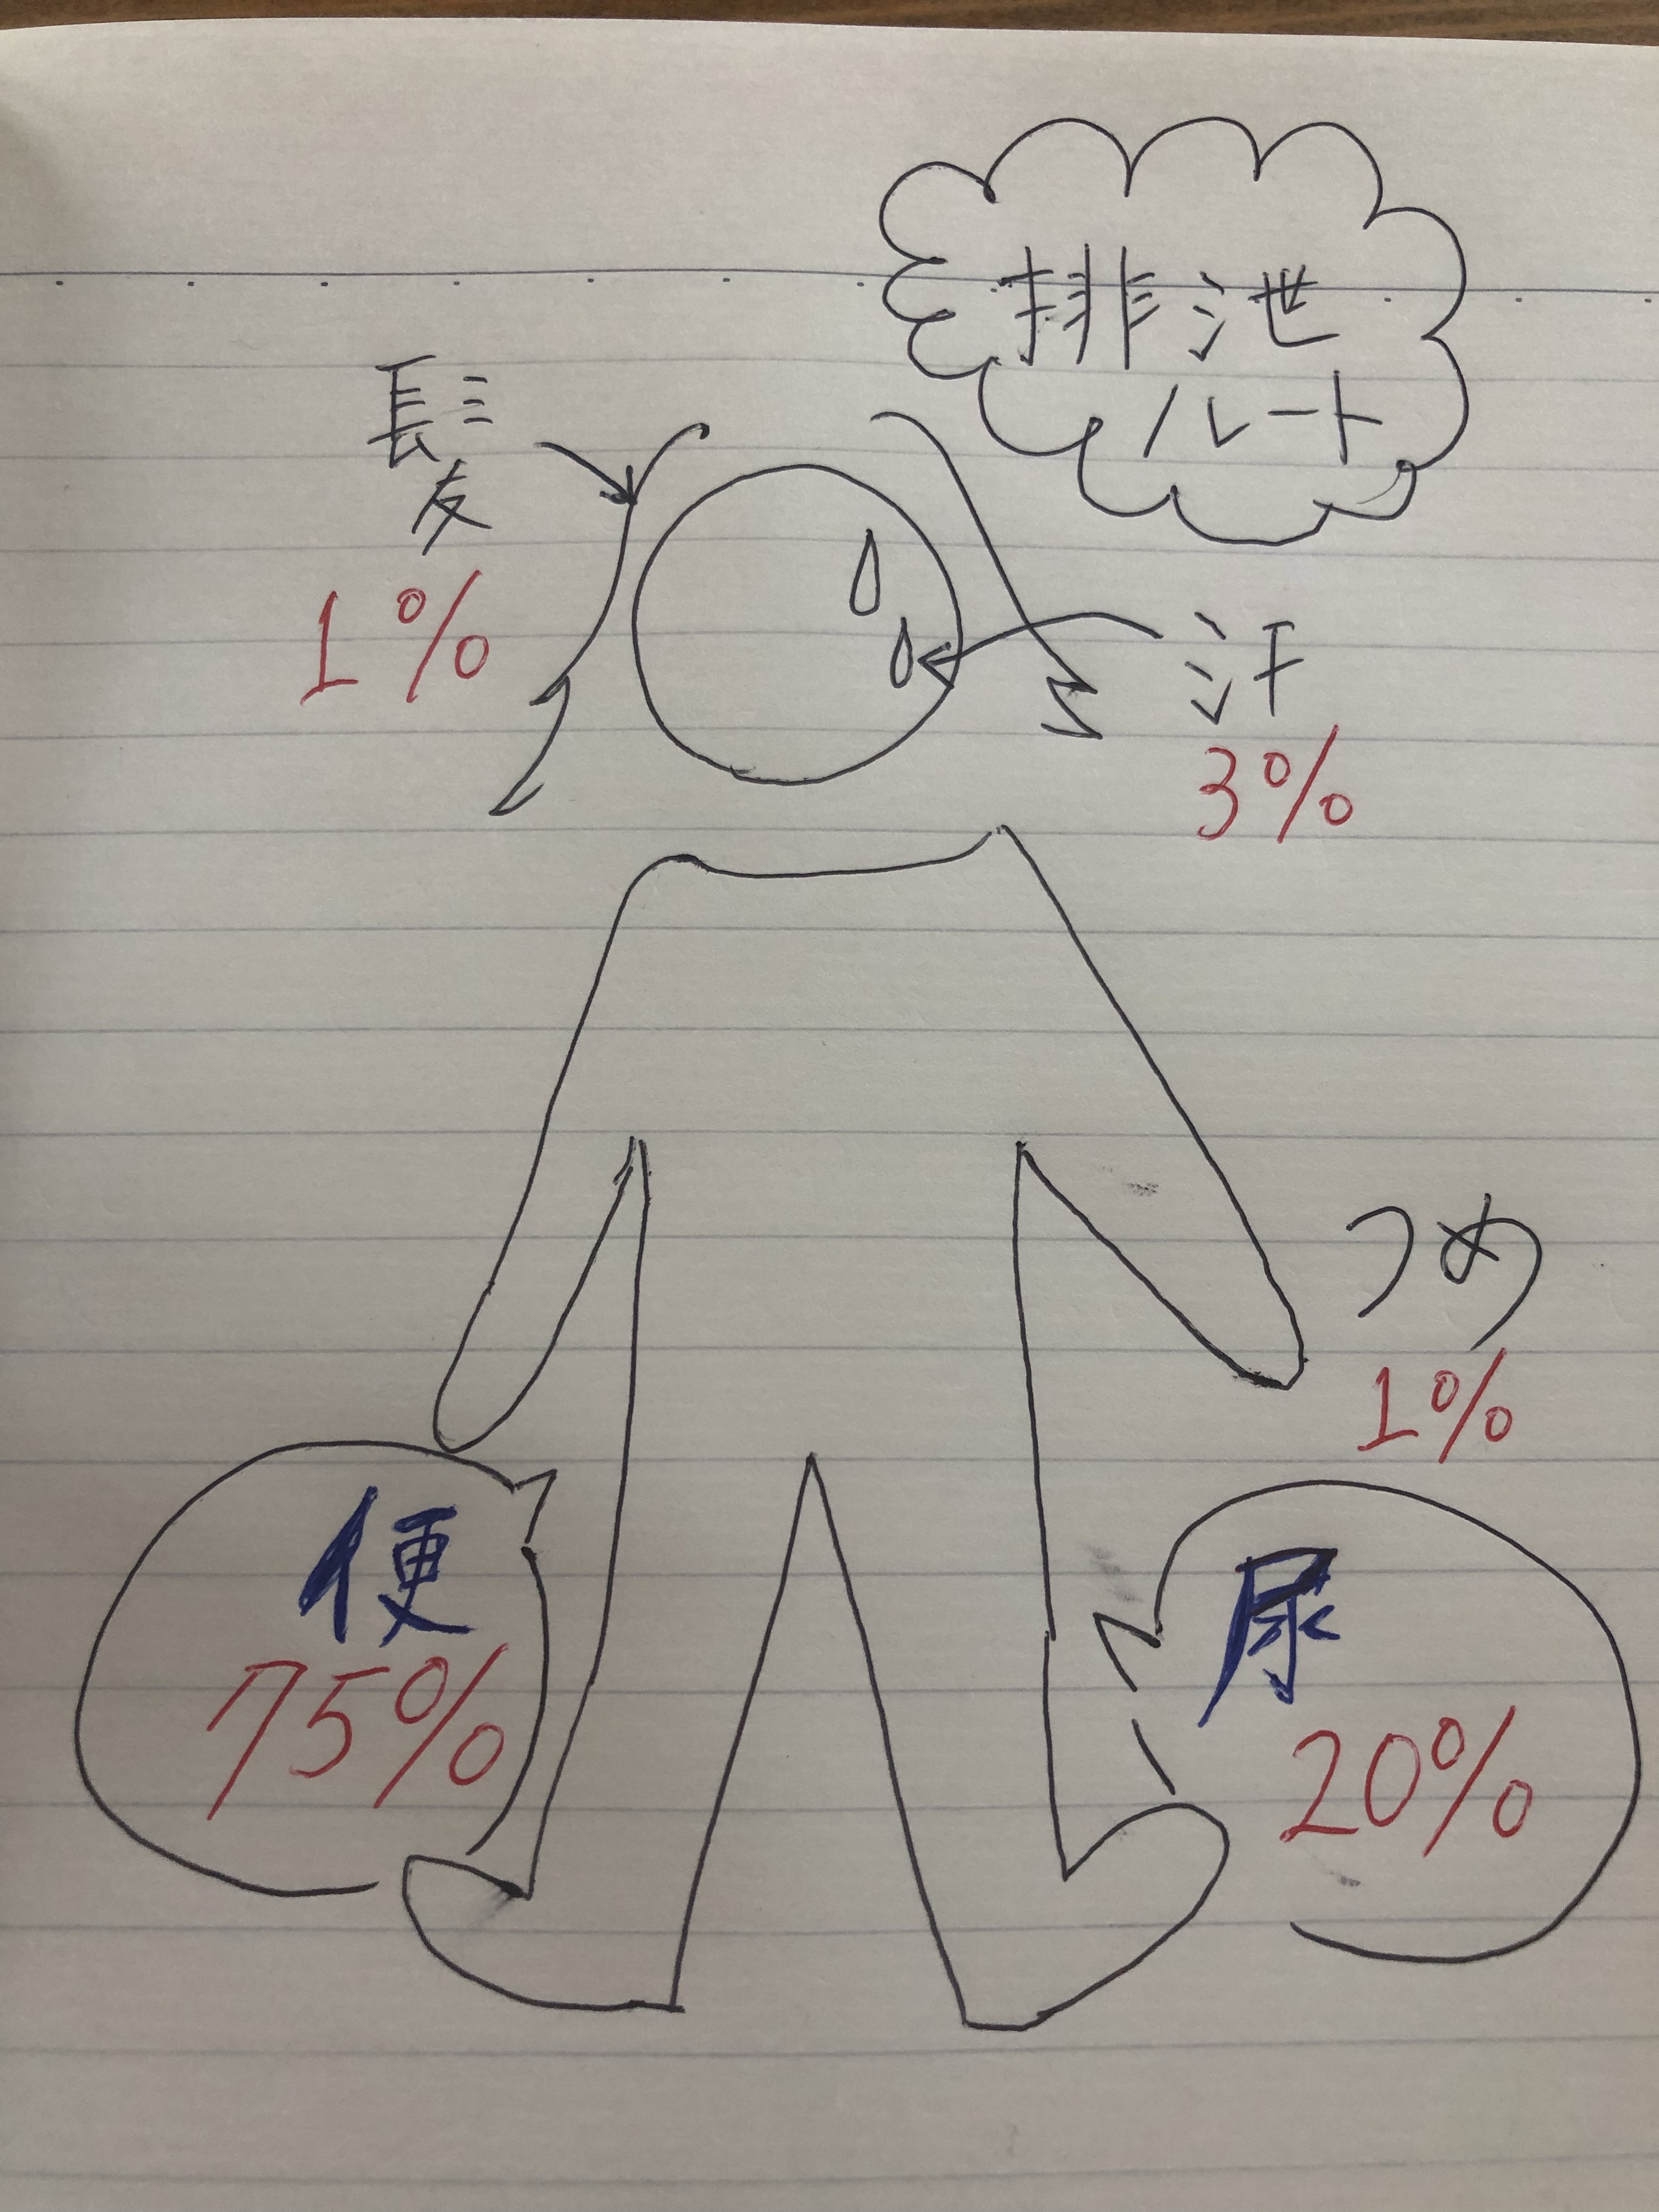 排泄
ルート
髪
1%
汗
3%
つめ
1%
便
75%
尿
20%